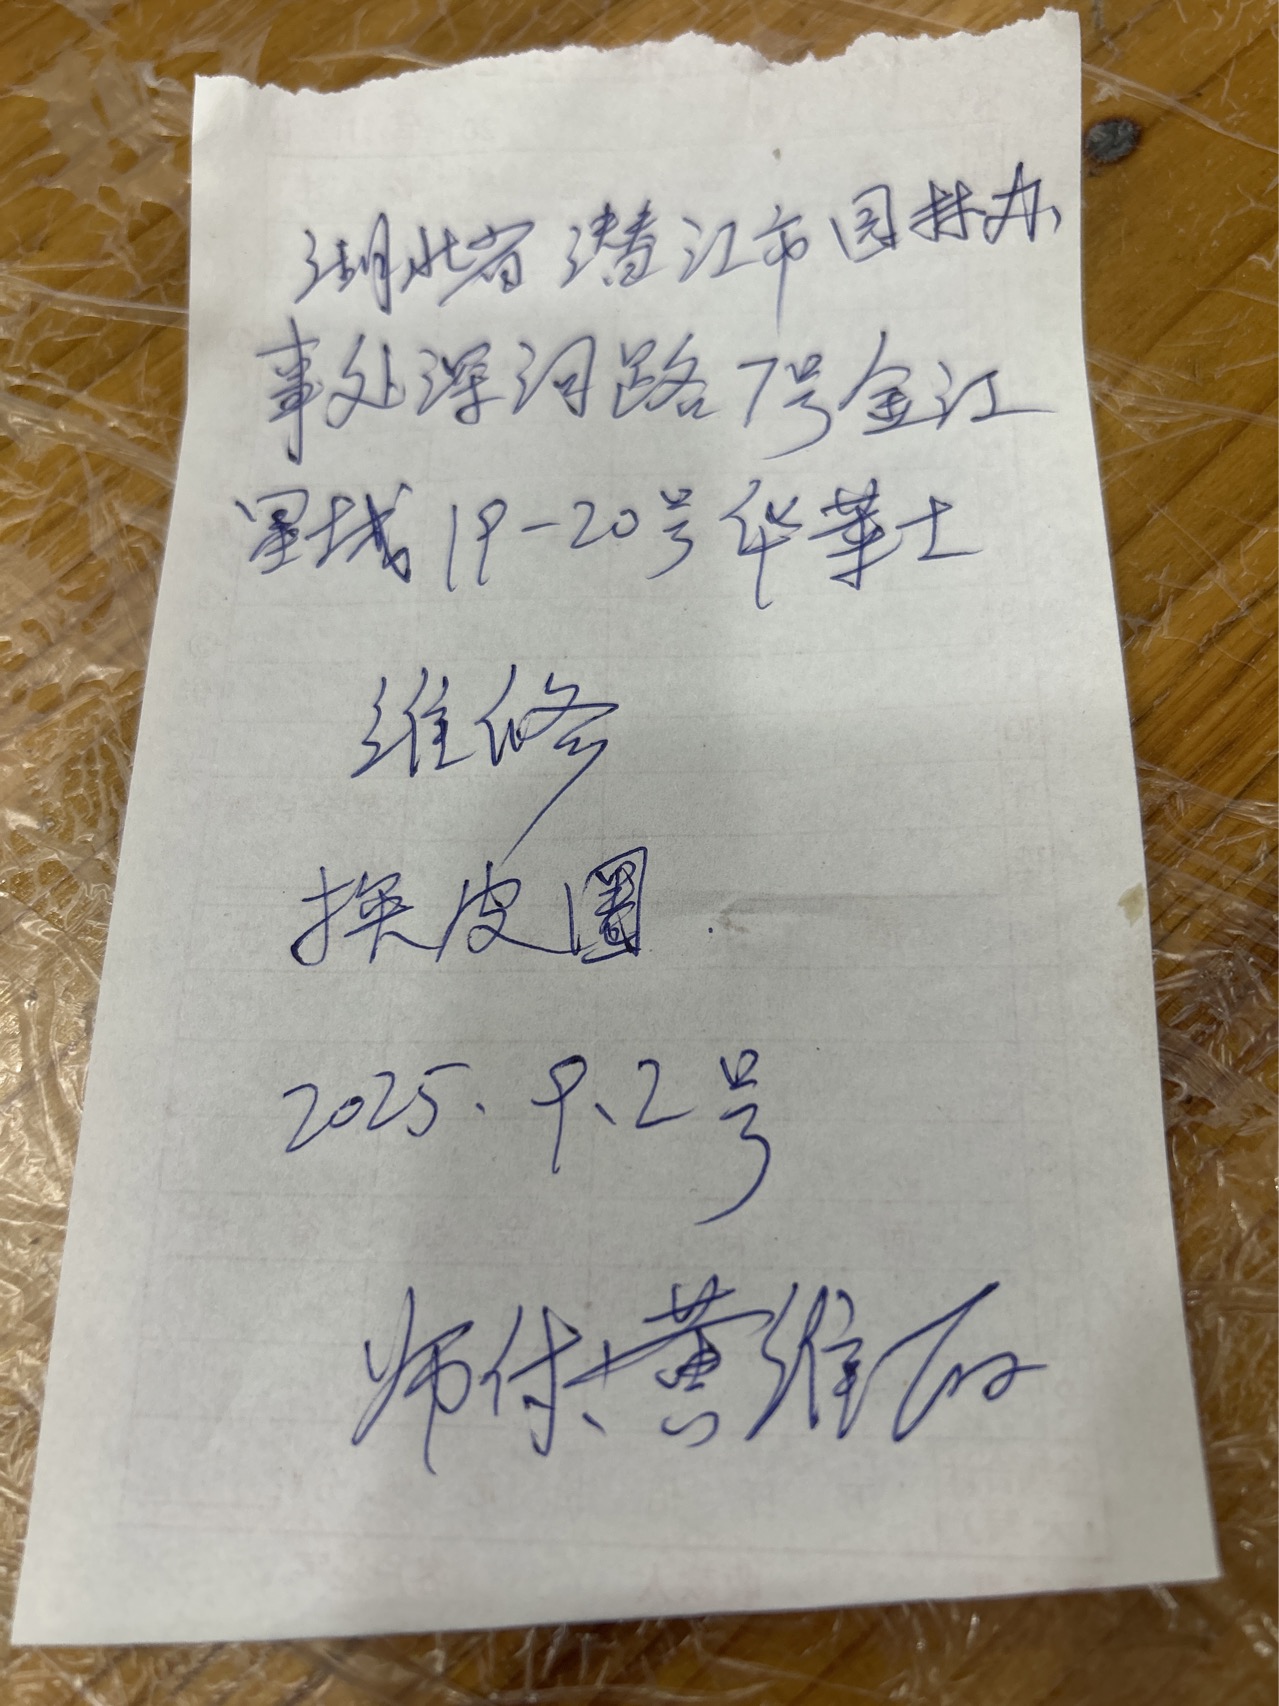 湖北省潜江市园林办
事处深河路7号金江
星城19-20号华莱士
维修
换皮圈.
2025、9、2号
师付:黄维